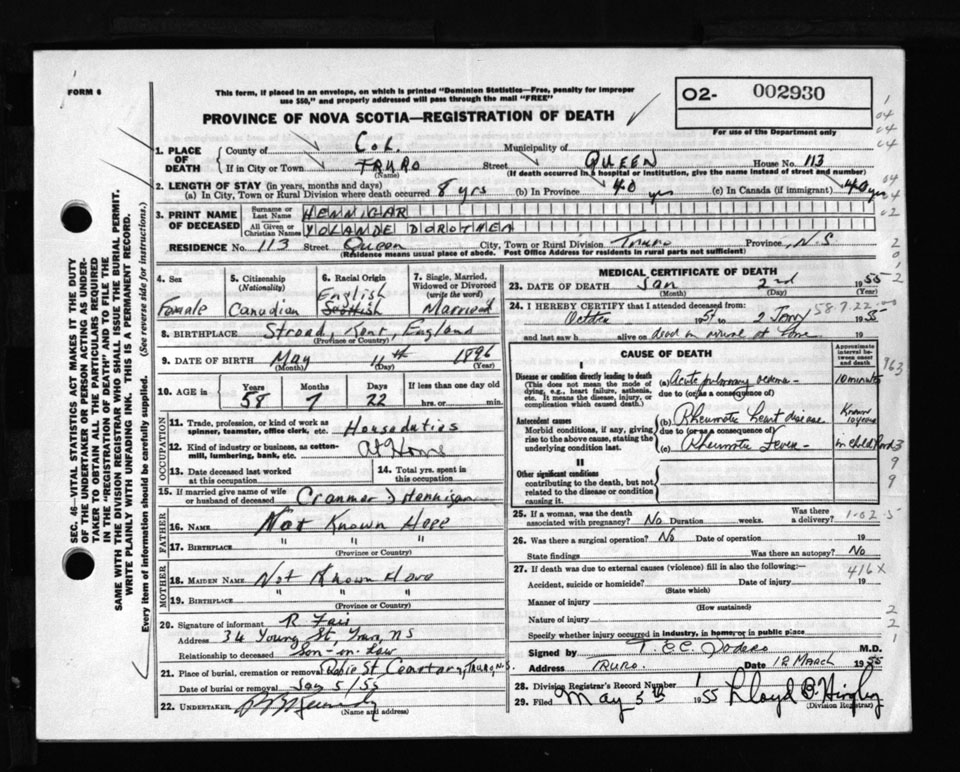 FORM 6
This form, if placed in an envelope, on which is printed "Dominion Statistics—Free, penalty for improper
use $50," and properly addressed will pass through the mail "FREE"
O2- 002930
For use of the Department only
PROVINCE OF NOVA SCOTIA—REGISTRATION OF DEATH
1. PLACE OF DEATH { County of Col. Municipality of
If in City or Town TRURO Street QUEEN House No. 113
(Name) (If death occurred in a hospital or institution, give name instead of street and number)
2. LENGTH OF STAY (in years, months and days)
(a) In City, Town or Rural Division where death occurred 8 yrs (b) In Province 40 yrs (c) In Canada (if immigrant) 40 yrs
3. PRINT NAME OF DECEASED { Surname or Last Name HENNIGAR
All Given or Christian Names YOLANDE DOROTHEA
RESIDENCE No. 113 Street Queen City, Town or Rural Division Truro Province N.S
(Residence means usual place of abode. Post Office Address for residents in rural parts not sufficient)
4. Sex Female
5. Citizenship (Nationality) Canadian
6. Racial Origin English Scottish
7. Single, Married, Widowed or Divorced (write the word) Married
8. BIRTHPLACE Strood, Kent, England
(Province or Country)
9. DATE OF BIRTH May 11th 1896
(Month) (Day)
10. AGE { Years 58 Months 7 Days 22 If less than one day old
hrs. or min.
OCCUPATION
11. Trade, profession, or kind of work as spinner, teamster, office clerk, etc. Houseduties
12. Kind of industry or business, as cotton-mill, lumbering, bank, etc. At Home
13. Date deceased last worked at this occupation
14. Total yrs. spent in this occupation
15. If married give name of wife or husband of deceased Cranmer Hennigar
FATHER
16. NAME Not Known Hope
17. BIRTHPLACE " "
(Province or Country)
MOTHER
18. MAIDEN NAME Not Known
19. BIRTHPLACE " "
(Province or Country)
20. Signature of informant R Fair
Address 34 Young St, Truro, NS
Relationship to deceased Son-in-Law
21. Place of burial, cremation or removal Robie St Cemetary, TRURO, N.S.
Date of burial or removal Jan 5/55
22. UNDERTAKER
(Name and address)
MEDICAL CERTIFICATE OF DEATH
23. DATE OF DEATH Jan 2nd 1955
(Month) (Day)
24. I HEREBY CERTIFY that I attended deceased from: 58.7.22
October 1954 to 2 Jany 1955
and last saw h alive on dead on arrival at home 19
CAUSE OF DEATH
Approximate interval between onset and death
I
Disease or condition directly leading to death
(This does not mean the mode of dying, e.g., heart failure, asthenia, etc. It means the disease, injury, or complication which caused death.)
(a) Acute pulmonary oedema 10 minutes
due to (or as a consequence of)
Antecedent causes
Morbid conditions, if any, giving rise to the above cause, stating the underlying condition last.
(b) Rheumatic heart disease Known 10 years
due to (or as a consequence of)
(c) Rheumatic Fever in childhood
II
Other significant conditions
contributing to the death, but not related to the disease or condition causing it.
25. If a woman, was the death associated with pregnancy? No Duration weeks. Was there a delivery? 1-02-5
26. Was there a surgical operation? No Date of operation 19
State findings Was there an autopsy? No
27. If death was due to external causes (violence) fill in also the following:— 416X
Accident, suicide or homicide? Date of injury 19
(State which)
Manner of injury
(How sustained)
Nature of injury
Specify whether injury occurred in industry, in home, or in public place
Signed by M.D.
Address TRURO. Date 12 March 1955
28. Division Registrar's Record Number 1
29. Filed May 5th 1955 Lloyd B. Hingley
(Division Registrar)
SEC. 46—VITAL STATISTICS ACT MAKES IT THE DUTY
OF THE UNDERTAKER OR PERSON ACTING AS UNDER-
TAKER TO OBTAIN ALL THE PARTICULARS REQUIRED
IN THE "REGISTRATION OF DEATH" AND TO FILE THE
SAME WITH THE DIVISION REGISTRAR WHO SHALL ISSUE THE BURIAL PERMIT.
WRITE PLAINLY WITH UNFADING INK. THIS IS A PERMANENT RECORD.
Every item of information should be carefully supplied. (See reverse side for instructions.)